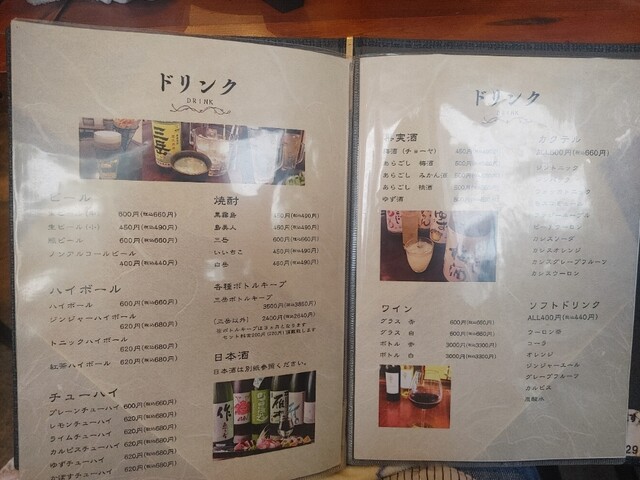 ドリンク
DRINK
三岳
ビール
生ビール(小) 450円(税込490円)
瓶ビール 600円(税込660円)
ノンアルコールビール
400円(税込440円)
ハイボール
ハイボール 600円(税込660円)
ジンジャーハイボール
620円(税込680円)
トニックハイボール
620円(税込680円)
紅茶ハイボール 620円(税込680円)
チューハイ
プレーンチューハイ 600円(税込660円)
レモンチューハイ 620円(税込680円)
ライムチューハイ 620円(税込680円)
カルピスチューハイ 620円(税込680円)
ゆずチューハイ 620円(税込680円)
かぼすチューハイ 620円(税込680円)
焼酎
黒霧島 450円(税込490円)
島美人 450円(税込490円)
三岳 600円(税込660円)
いいちこ 450円(税込490円)
白岳 450円(税込490円)
各種ボトルキープ
三岳ボトルキープ
3500円(税込3850円)
(三岳以外) 2400円(税込2640円)
日本酒
日本酒は別紙参照ください。
ドリンク
果実酒
梅酒(チョーヤ)
あらごし 梅酒
あらごし みかん酒
あらごし 桃酒
ゆず酒
ワイン
グラス 赤 600円(税込660円)
グラス 白 600円(税込660円)
ボトル 赤 3000円(税込3300円)
ボトル 白 3000円(税込3300円)
カクテル
ジントニック
カシスソーダ
カシスオレンジ
カシスグレープフルーツ
カシスウーロン
ソフトドリンク
ALL400円(税込440円)
ウーロン茶
コーラ
オレンジ
ジンジャーエール
グレープフルーツ
カルピス
炭酸水
29